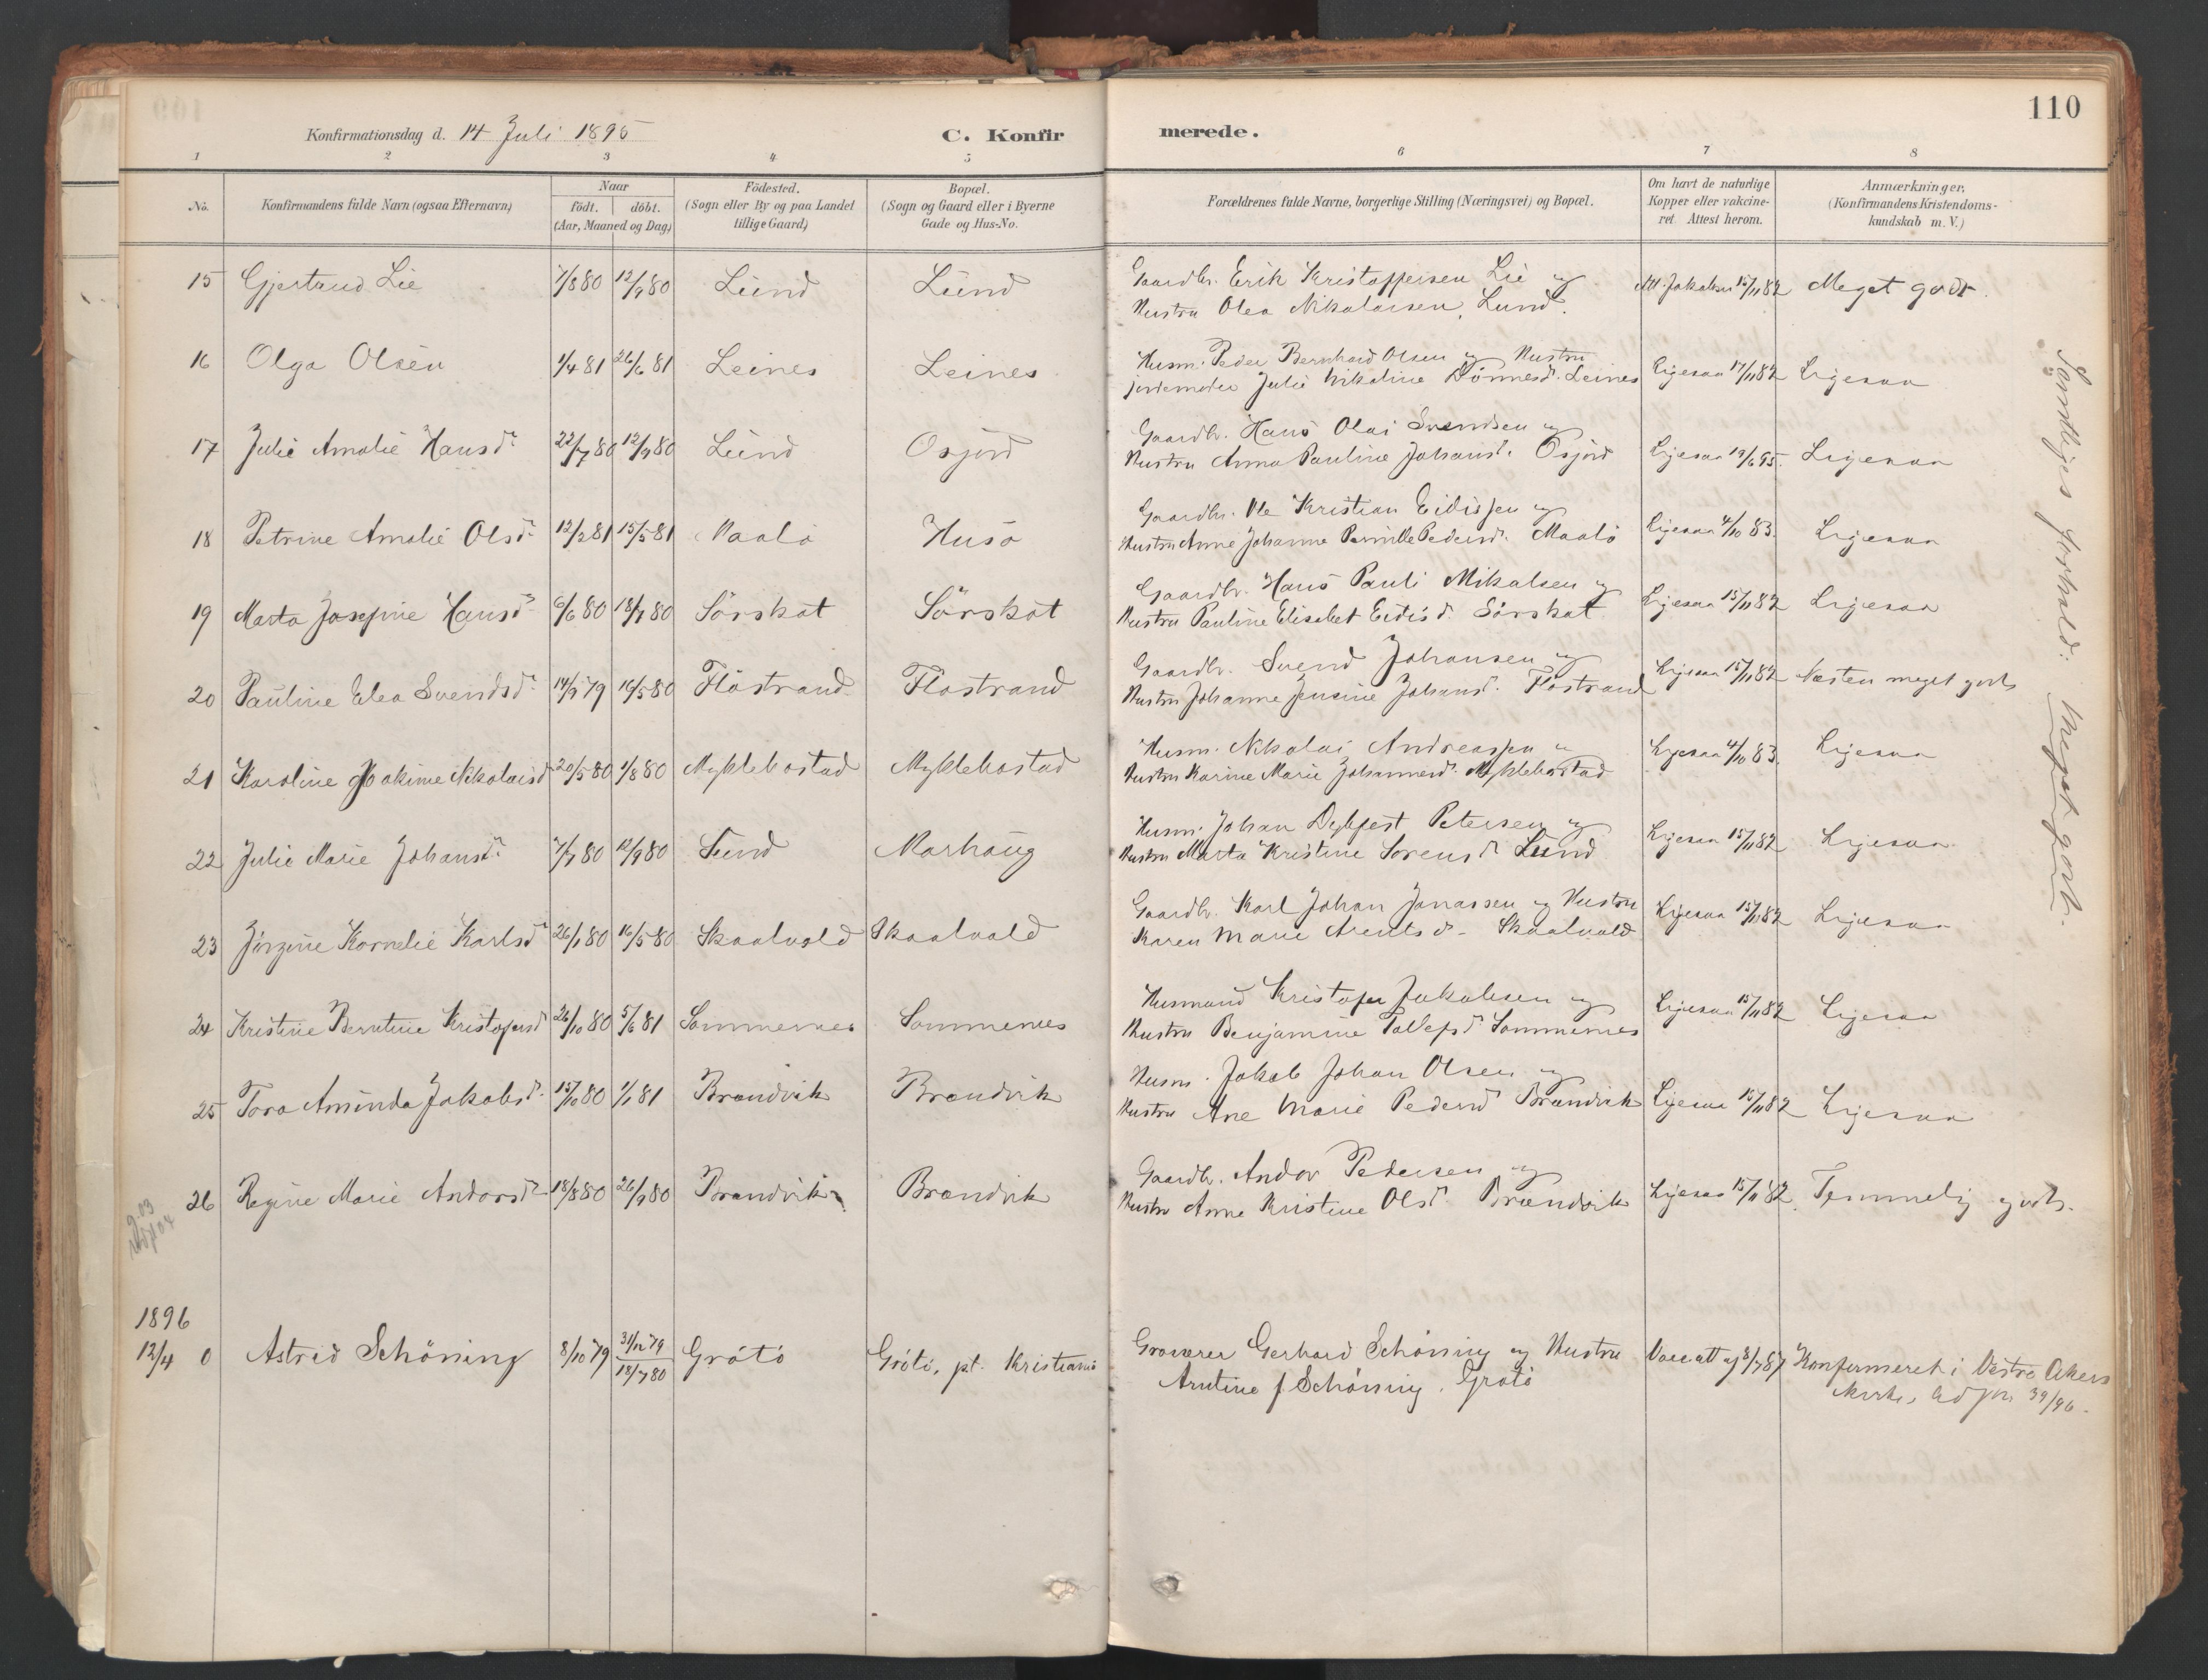 110
Konfirmationsdag d. 14 Juli 1895
C. Konfirmerede.
1 2 3 4 5 6 7 8
No.
Konfirmandens fulde Navn (ogsaa Efternavn)
Naar
födt. döbt.
(Aar, Maaned og Dag)
Födested.
(Sogn eller By og paa Landet
tillige Gaard)
Bopæl.
(Sogn og Gaard eller i Byerne
Gade og Hus-No.
Forældrenes fulde Navne, borgerlige Stilling (Næringsvei) og Bopæl.
Om havt de naturlige
Kopper eller vakcine-
ret. Attest herom.
Anmærkninger,
(Konfirmandens Kristendoms-
kundskab m.V.)
15 Gjertrud Lie 7/8 80 12/9 80 Lund Lund Gaardbr. Erik Kristoffersen Lie og
Hustru Olea Nikolaisen, Lund. Att. Jakobsen 15/11 82 Meget godt.
16 Olga Olsen 1/4 81 26/6 81 Leines Leines Husm. Peder Bernhard Olsen og Hustru
jordemoder Julie Nikoline Dönnesd. Leines Ligesaa 17/11 82 Ligesaa
17 Julie Amalie Hansdr 22/7 80 12/9 80 Lund Osjord Gaardbr. Hans Olai Svendsen og
Hustru Anna Pauline Johansdr. Osjord Ligesaa 19/6 95. Ligesaa
18 Petrine Amalie Olsdr 12/2 81 15/5 81 Maalö Husö Gaardbr. Ole Kristian Eidissen og
Hustru Anne Johanne Pernille Pedersd. Maalö Ligesaa 4/10 83. Ligesaa
19 Marta Josefine Hansdr 6/6 80 18/7 80 Sörskot Sörskot Gaardbr. Hans Pauli Mikalsen og
Hustru Pauline Elisabet Eidisd. Sörskot Ligesaa 15/11 82 Ligesaa
20 Pauline Elea Svendsdr 14/9 79 16/5 80 Flostrand Flostrand Gaardbr. Svend Johansen og
Hustru Johanne Jensine Johansd. Flostrand Ligesaa 15/11 82 Næsten meget godt
21 Karoline Joakime Nikolaisd 20/5 80 1/8 80 Myklebostad Myklebostad Husm. Nikolai Andreassen og
Hustru Karine Marie Johannesd. Myklebostad Ligesaa 4/10 83. Ligesaa
22 Julie Marie Johansdr 7/7 80 12/9 80 Lund Marhaug Husm. Johan Dykfest Petersen og
Hustru Marta Kristine Sorensdr Lund Ligesaa 15/11 82 Ligesaa
23 Jörgine Kornelie Karlsdr 26/1 80 16/5 80 Skaalvold Skaalvold Gaardbr. Karl Johan Jonassen og Hustru
Karen Marie Arentsdr Skaalvold Ligesaa 15/11 82 Ligesaa
24 Kristine Berntine Kristofersd 26/10 80 5/6 81 Sommernes Sommernes Husmand Kristofer Jakobsen og
Hustru Benjamine Tollefsdr Sommernes Ligesaa 15/11 82 Ligesaa
25 Tora Aminda Jakobsdr. 15/10 80 1/1 81 Brandvik Brandvik Husm. Jakob Johan Olsen og
Hustru Ane Marie Pedersd Brandvik Ligesaa 15/11 82 Ligesaa
26 Regine Marie Andorsdr 18/8 80 26/9 80 Brandvik Brandvik Gaardbr. Andor Pedersen og
Hustru Anne Kristine Olsdr. Brandvik Ligesaa 15/11 82. Temmelig godt.
Samtliges forhold: Meget godt.
1896
12/4 0 Astrid Schöning 8/10 79 31/12 79
18/7 80 Grötö Grötö, pt. Kristiania Grosserer Gerhard Schöning og Hustru
Arntine f Schöning. Grötö 8/7 87 Konfirmeret i Vestre Akers
Kirke,  39/96.